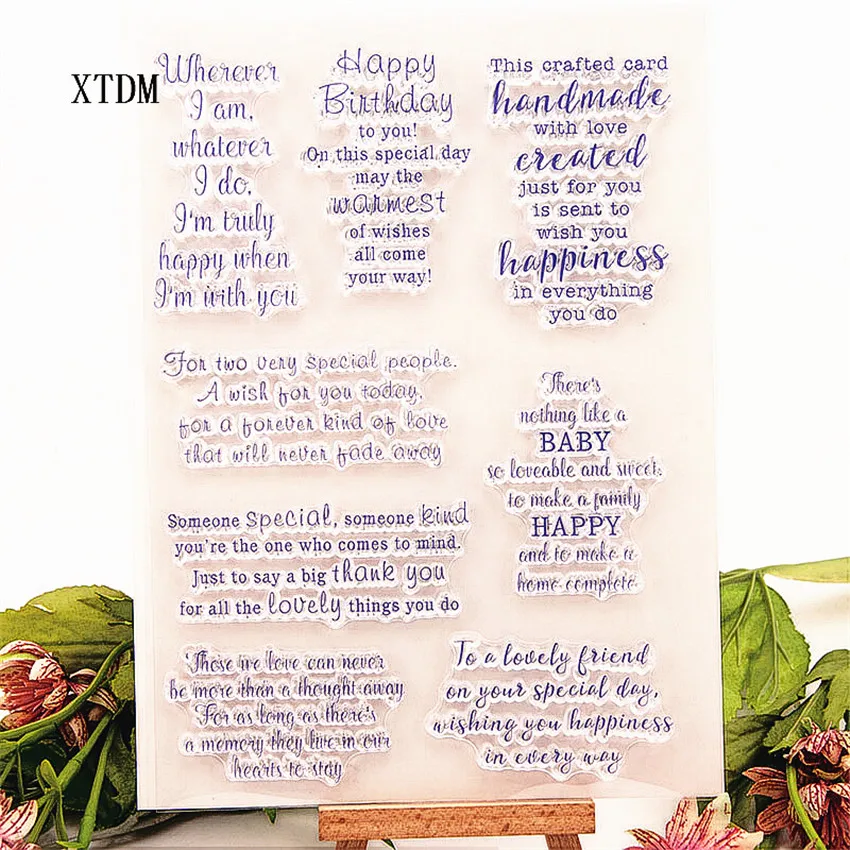 XTDM
Wherever
I am,
whatever
I do,
I'm truly
happy when
I'm with you
Happy
Birthday
to you!
On this special day
may the
warmest
of wishes
all come
your way!
This crafted card
handmade
with love
created
just for you
is sent to
wish you
happiness
in everything
you do
For two very special people.
A wish for you today,
for a forever kind of love
that will never fade away
There's
nothing like a
BABY
so loveable and sweet,
to make a family
HAPPY
and to make a
home complete
Someone special, someone kind
you're the one who comes to mind.
Just to say a big thank you
for all the lovely things you do
Those we love can never
be more than a thought away
For as long as there's
a memory they live in our
hearts to stay
To a lovely friend
on your special day,
wishing you happiness
in every way